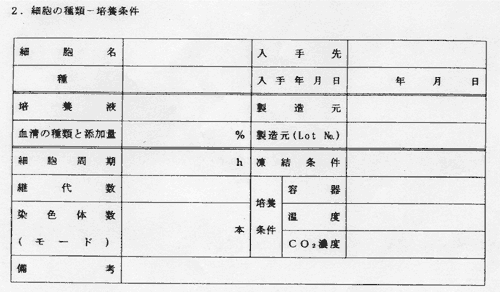 2. 細胞の種類－培養条件
細胞名 入手先
種 入手年月日 年 月 日
培養液 製造元
血清の種類と添加量 % 製造元(Lot No.)
細胞周期 h 凍結条件
継代数 容器
染色体数 本 培養 温度
(モード) 条件 CO₂濃度
備考